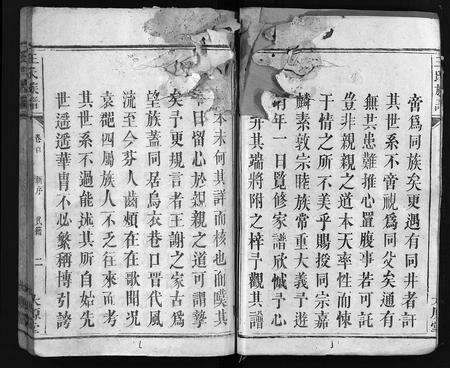 啻為同族矣更遇有同井者訐
其世系不啻視為同父矣通有
無共患難推心置腹事可託
豈非親親之道本天率性而悚
于情之所不美乎賜掞同宗嘉
麟素敦宗睦族常重大義予遊
年一日覽修家譜欣慽予心
弁其端將附之梓予觀其譜
本末何其詳而核也而嘆其
日留心於親親之道可謂摯
矣予更規言者王謝之家古為
望族蓋同居烏衣巷口晉代風
流至今芬人齒頰在在歌聞况
袁禠四屬族人不乏往來而考
其世系不過能述其所自始先
世遥遥華胄不必繁稱博引誇
王氏族譜
卷首
新序
二
太原堂